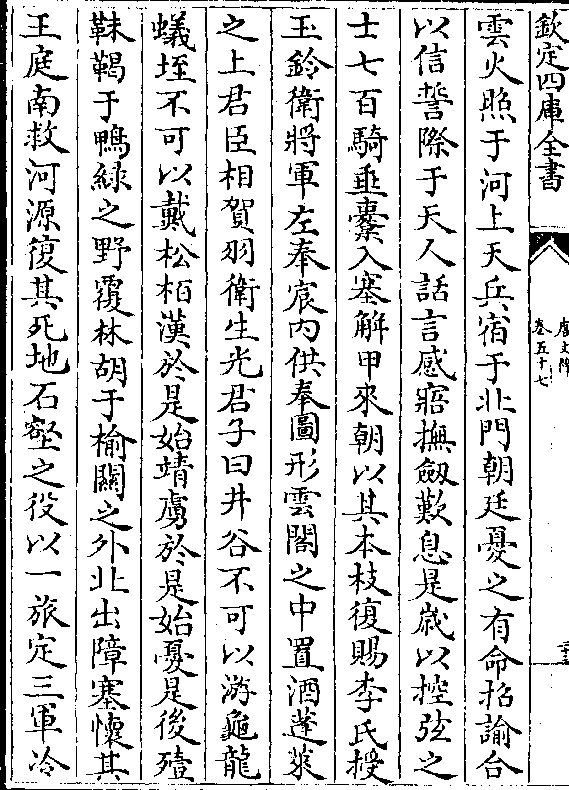 欽定四庫全書
卷五十七
雲火照于河上天兵宿于北門朝廷憂之有命招諭台
以信誓際于天人話言感寤撫劔歎息是嵗以控弦之
士七百騎垂櫜入塞解甲來朝以其本枝復賜李氏授
玉鈴衛將軍左奉宸内供奉圖形雲閣之中置酒蓬萊
之上君臣相賀羽衛生光君子曰井谷不可以游龜龍
蟻垤不可以戴松栢漢於是始靖虜於是始憂是後殪
靺鞨于鴨緑之野覆林胡于榆關之外北出障塞懷其
王庭南救河源復其死地石壑之役以一旅定三軍冷